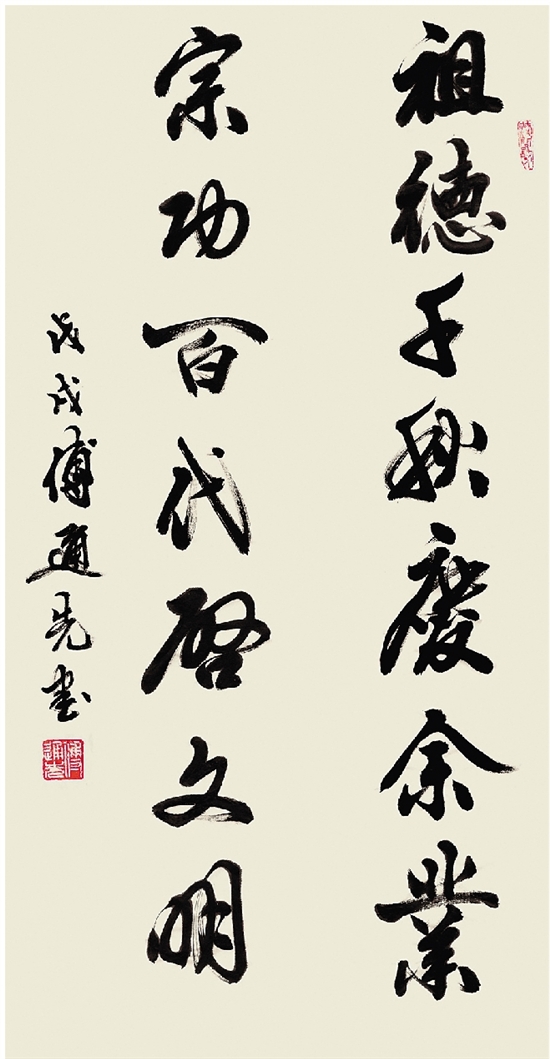 祖德千秋慶余業
宗功百代啓文明
戊戌傅通先書